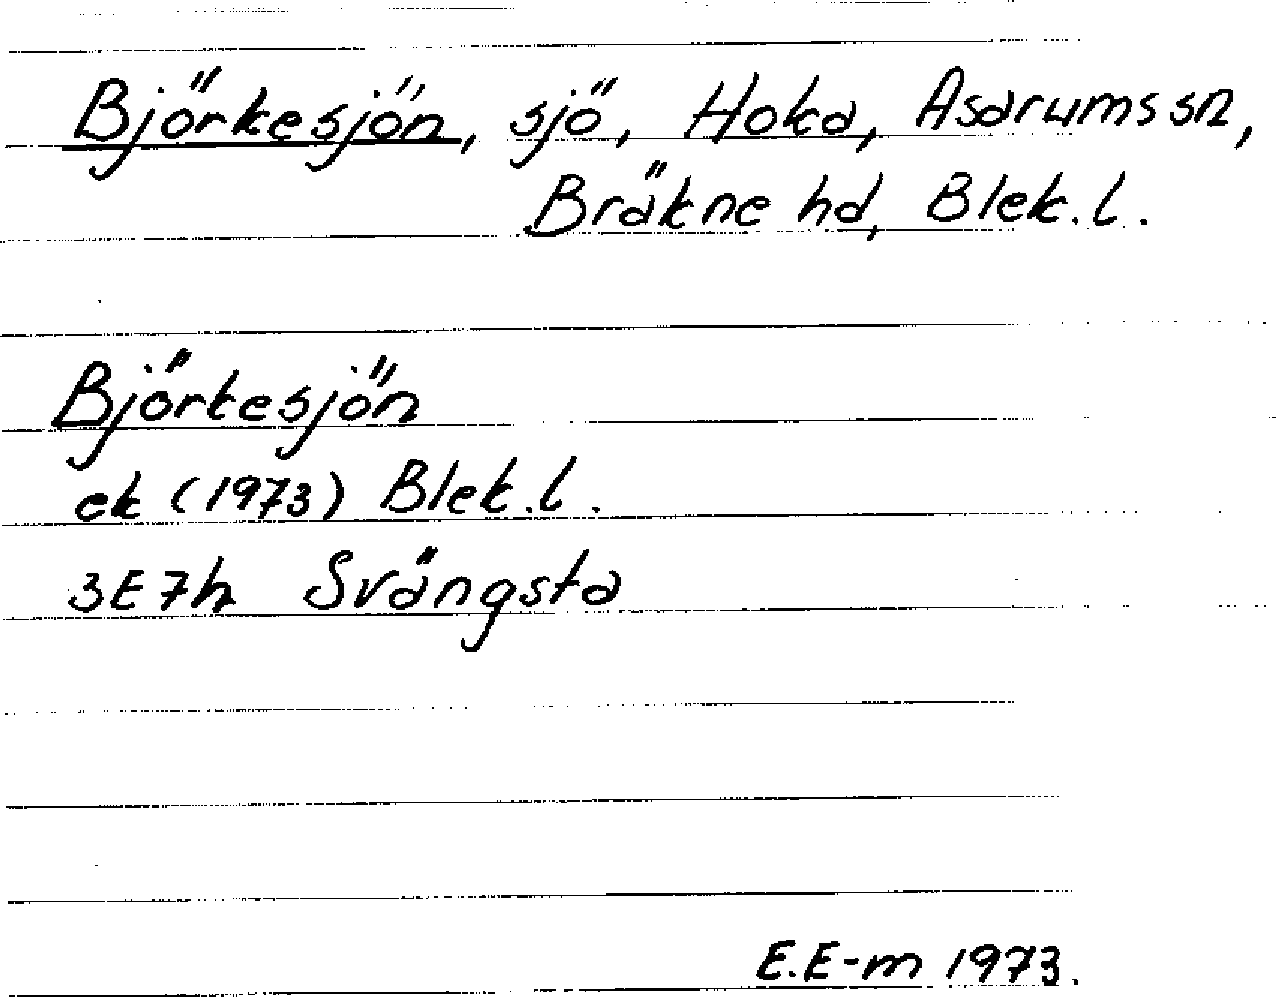 Björkesjön, sjö, Hoka, Asarums sn,
Bräkne hd, Blek. l.
Björkesjön
ek (1973) Blek. l.
3E7h Svängsta
E.E-m 1973.